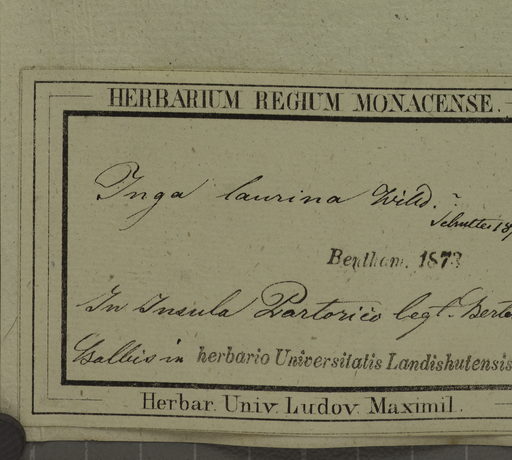 HERBARIUM REGIUM MONACENSE.
Inga laurina Willd.
Bentham. 1873
In Insula Portorico legt.
Balbis in herbario Universitatis Landishutensis
Herbar. Univ. Ludov. Maximil.